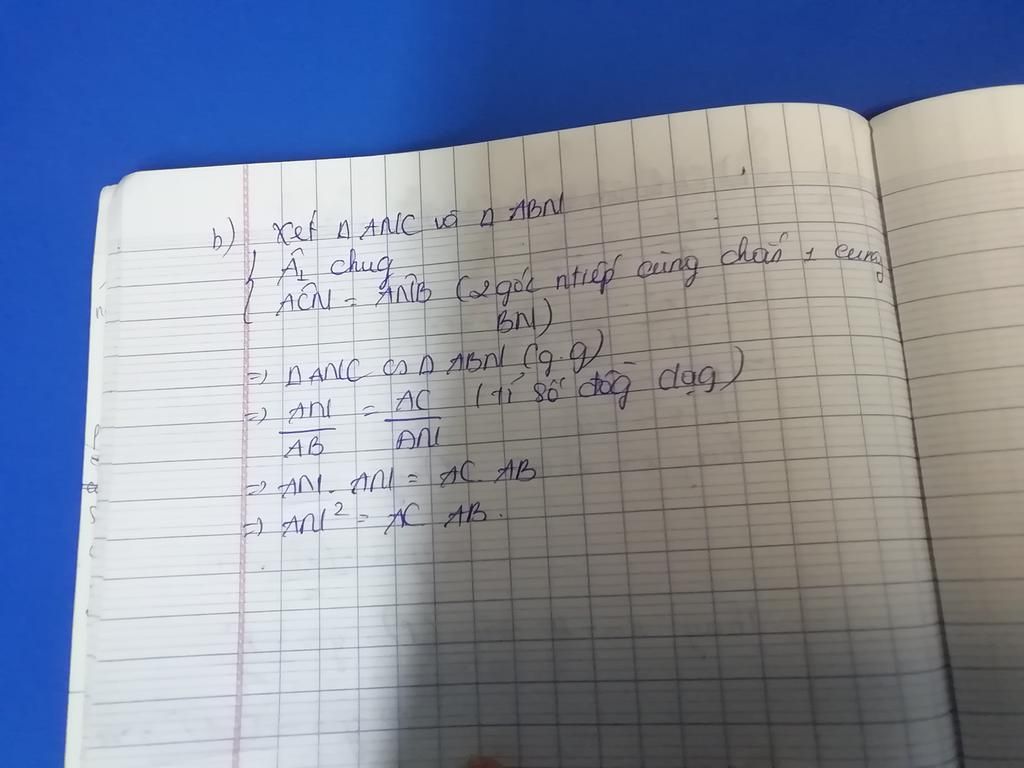 b) Xét Δ ANC và Δ ABN
{ Â₁ chug
{ AĈN = AN̂B (2 góc ntiếp cùng chắn 1 cung
BN)
=> Δ ANC ∽ Δ ABN (g.g)
=> AN/AB = AC/AN (tỉ số đồg dạg)
=> AN. AN = AC AB
=> AN² = AC AB.